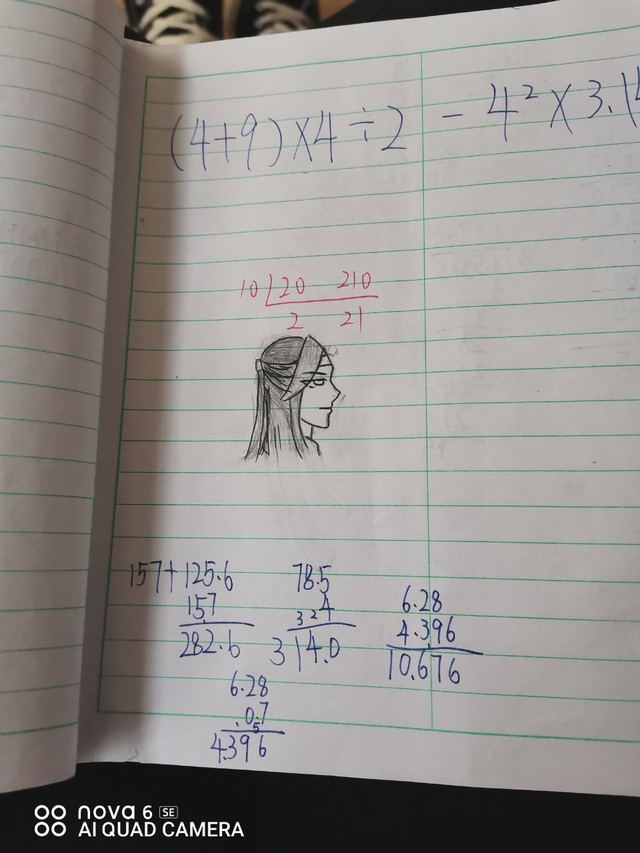 (4+9)×4÷2 - 4²×3.14
10 20 210
2 21
157+125.6
157
282.6
78.5
324
314.0
6.28
4.396
10.676
6.28
0.7
5
4.396
nova 6 SE
AI QUAD CAMERA